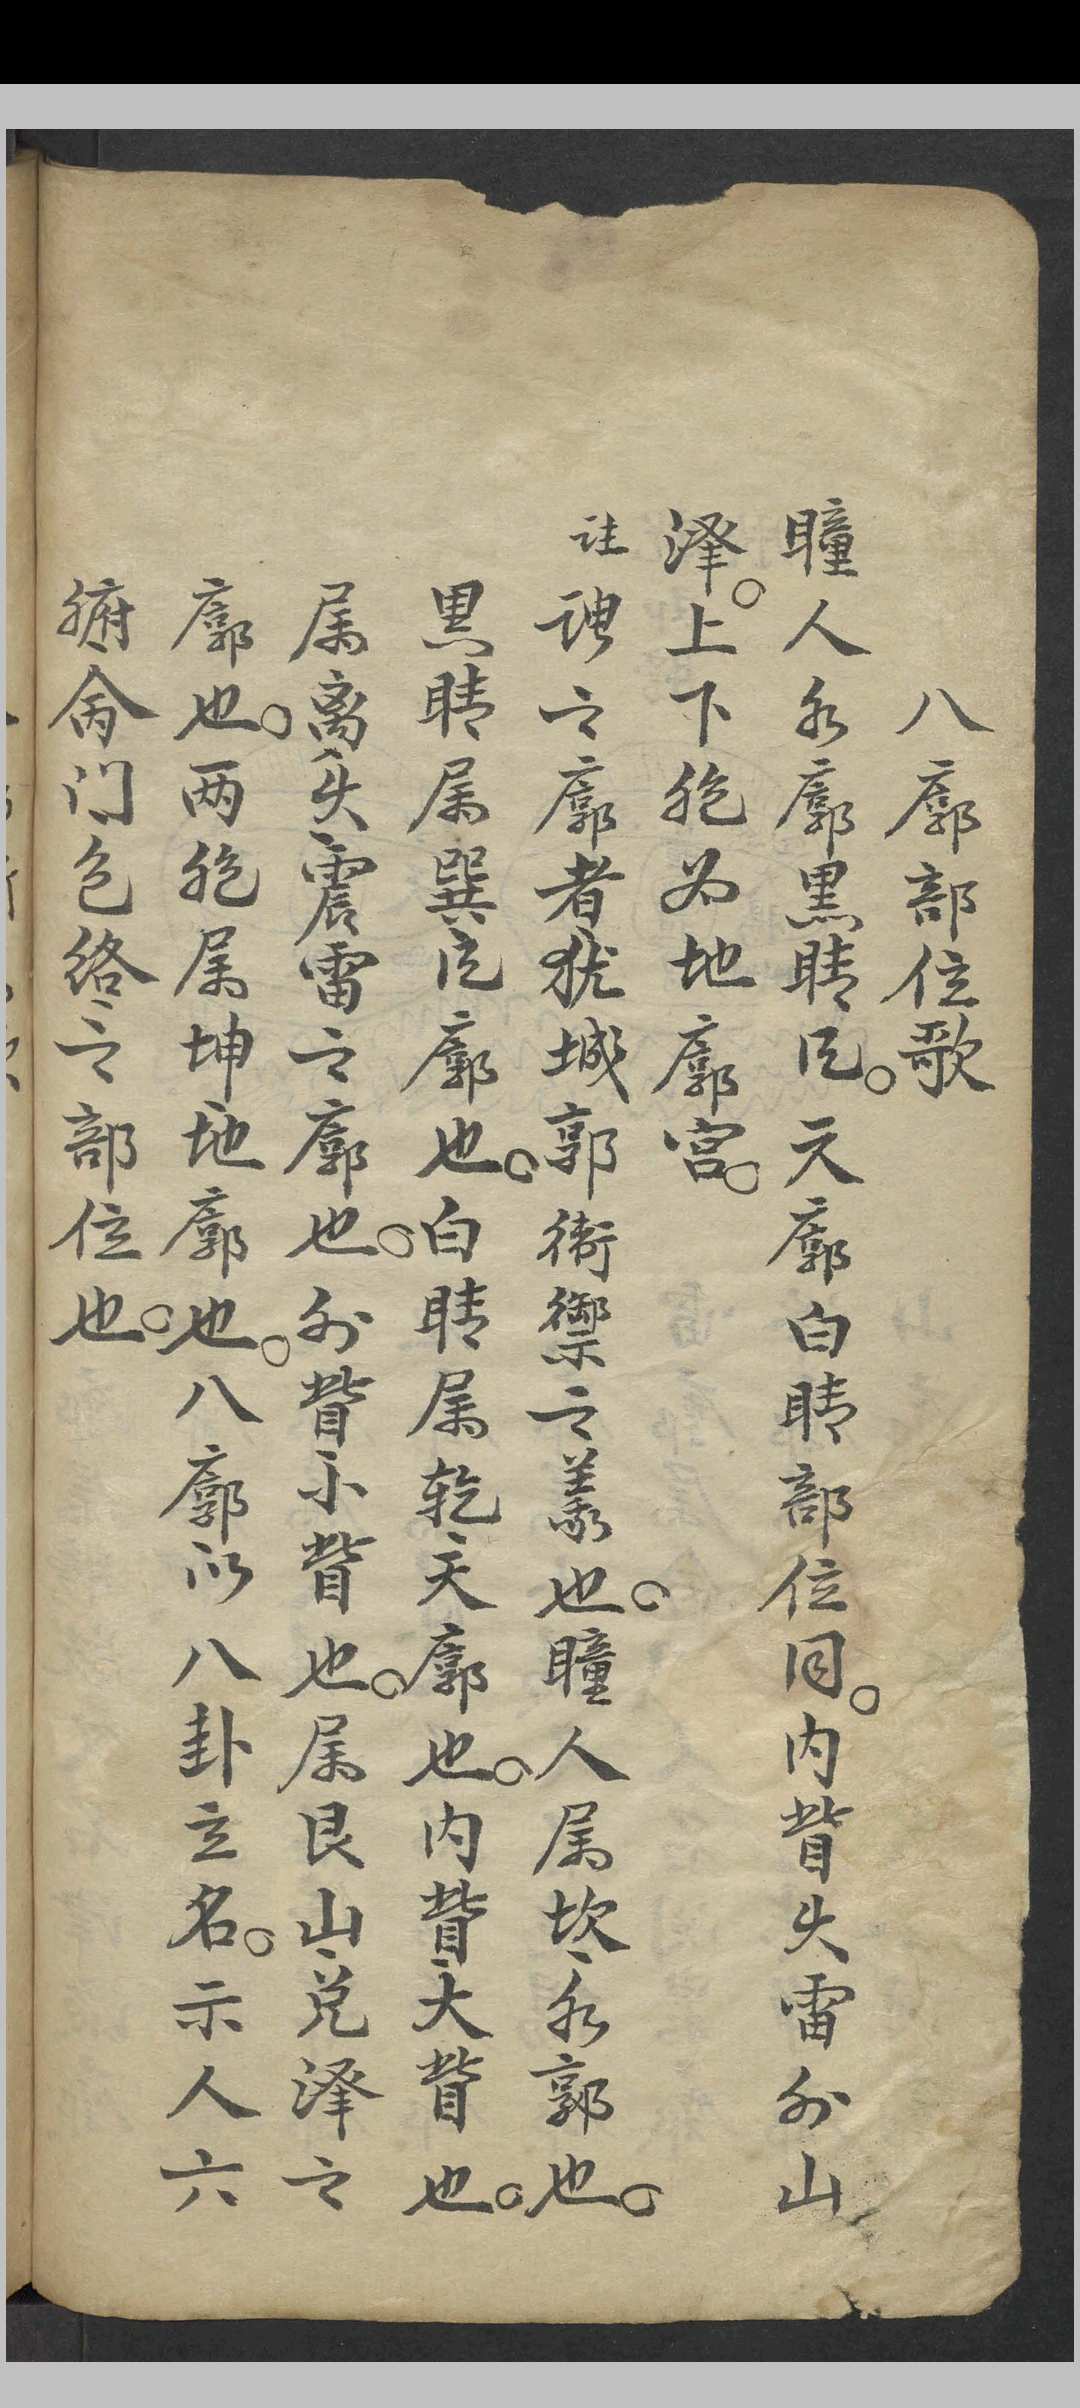 八廓部位歌
瞳人水廓黑睛风。天廓白睛部位同。内眥火雷外山
泽。上下胞为地廓宫。
註 谓之廓者犹城郭衛禦之義也。瞳人属坎水郭也。
黑睛属巽风廓也。白睛属乾天廓也。内眥大眥也。
属离火震雷之廓也。外眥小眥也。属艮山兑泽之
廓也。两胞属坤地廓也。八廓以八卦立名。示人六
腑命门包络之部位也。